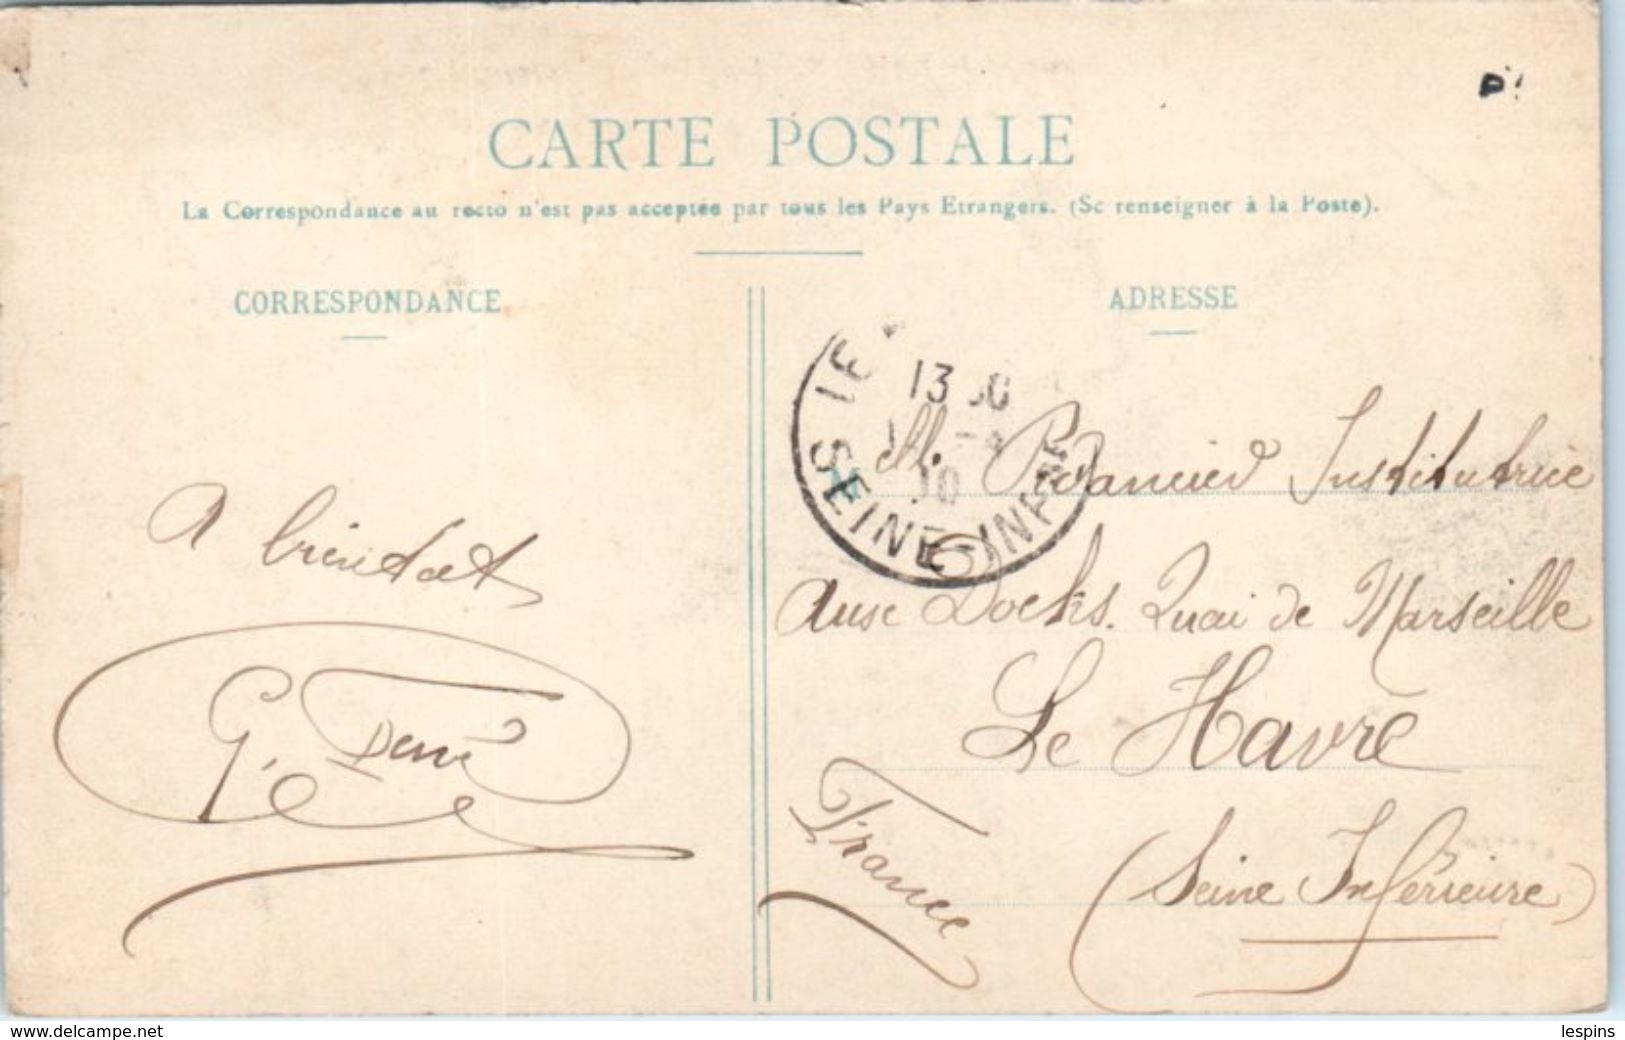 CARTE POSTALE
La Correspondance au recto n'est pas acceptée par tous les Pays Etrangers. (Se renseigner à la Poste).
CORRESPONDANCE
ADRESSE
A bientot
G.
13
SEINE-INFRE
M
Institutrice
aux Docks. Quai de Marseille
Le Havre
(Seine Inférieure)
France
www.delcampe.net
lespins